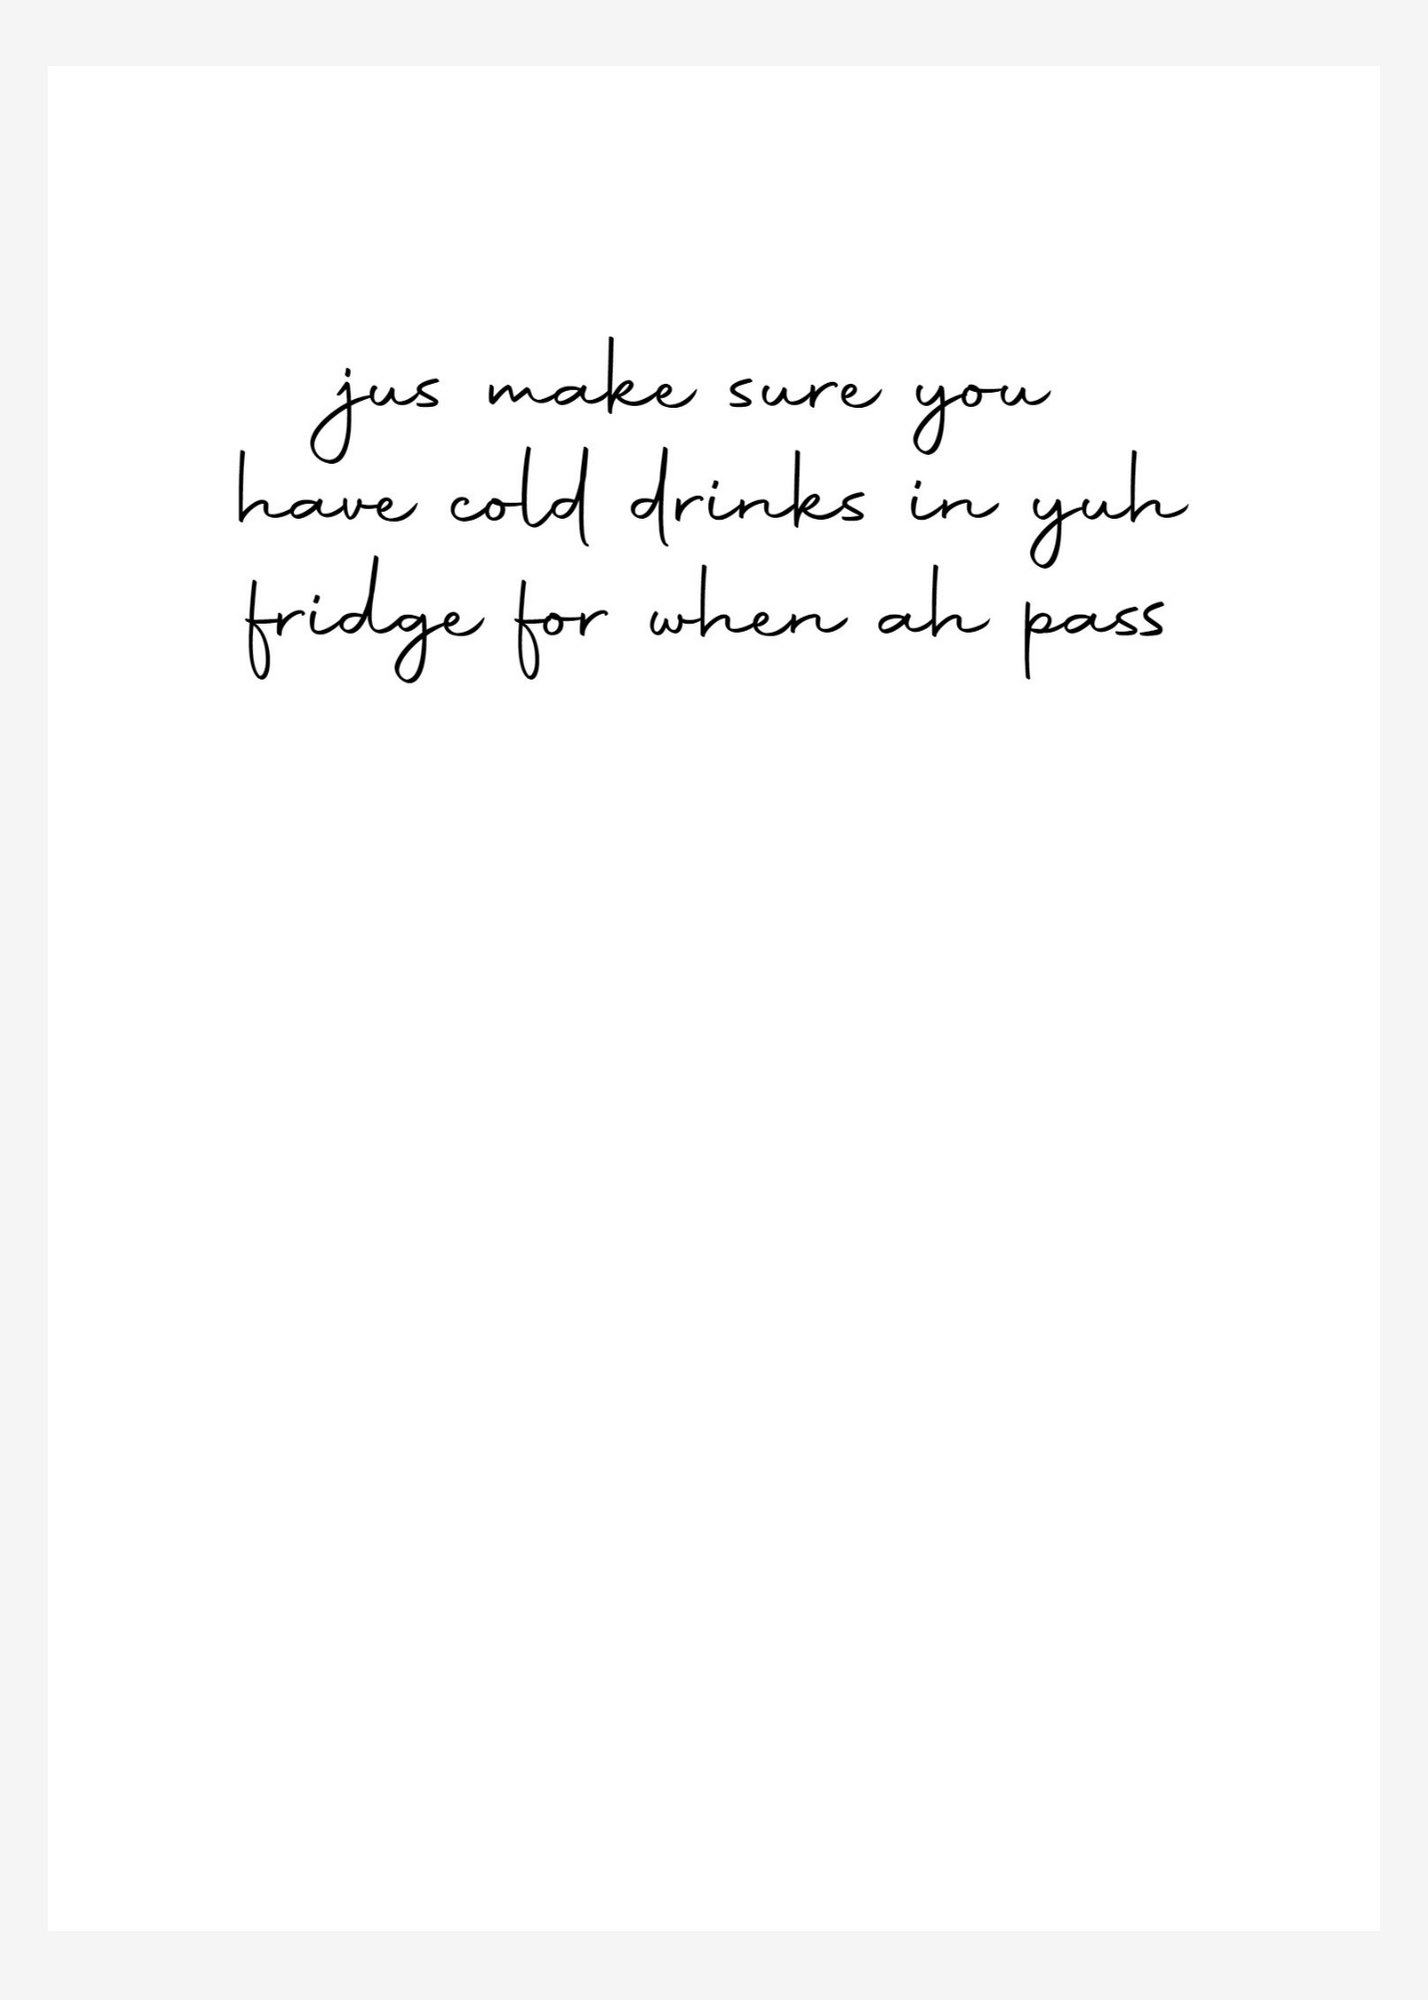 jus make sure you
have cold drinks in yuh
fridge for when ah pass